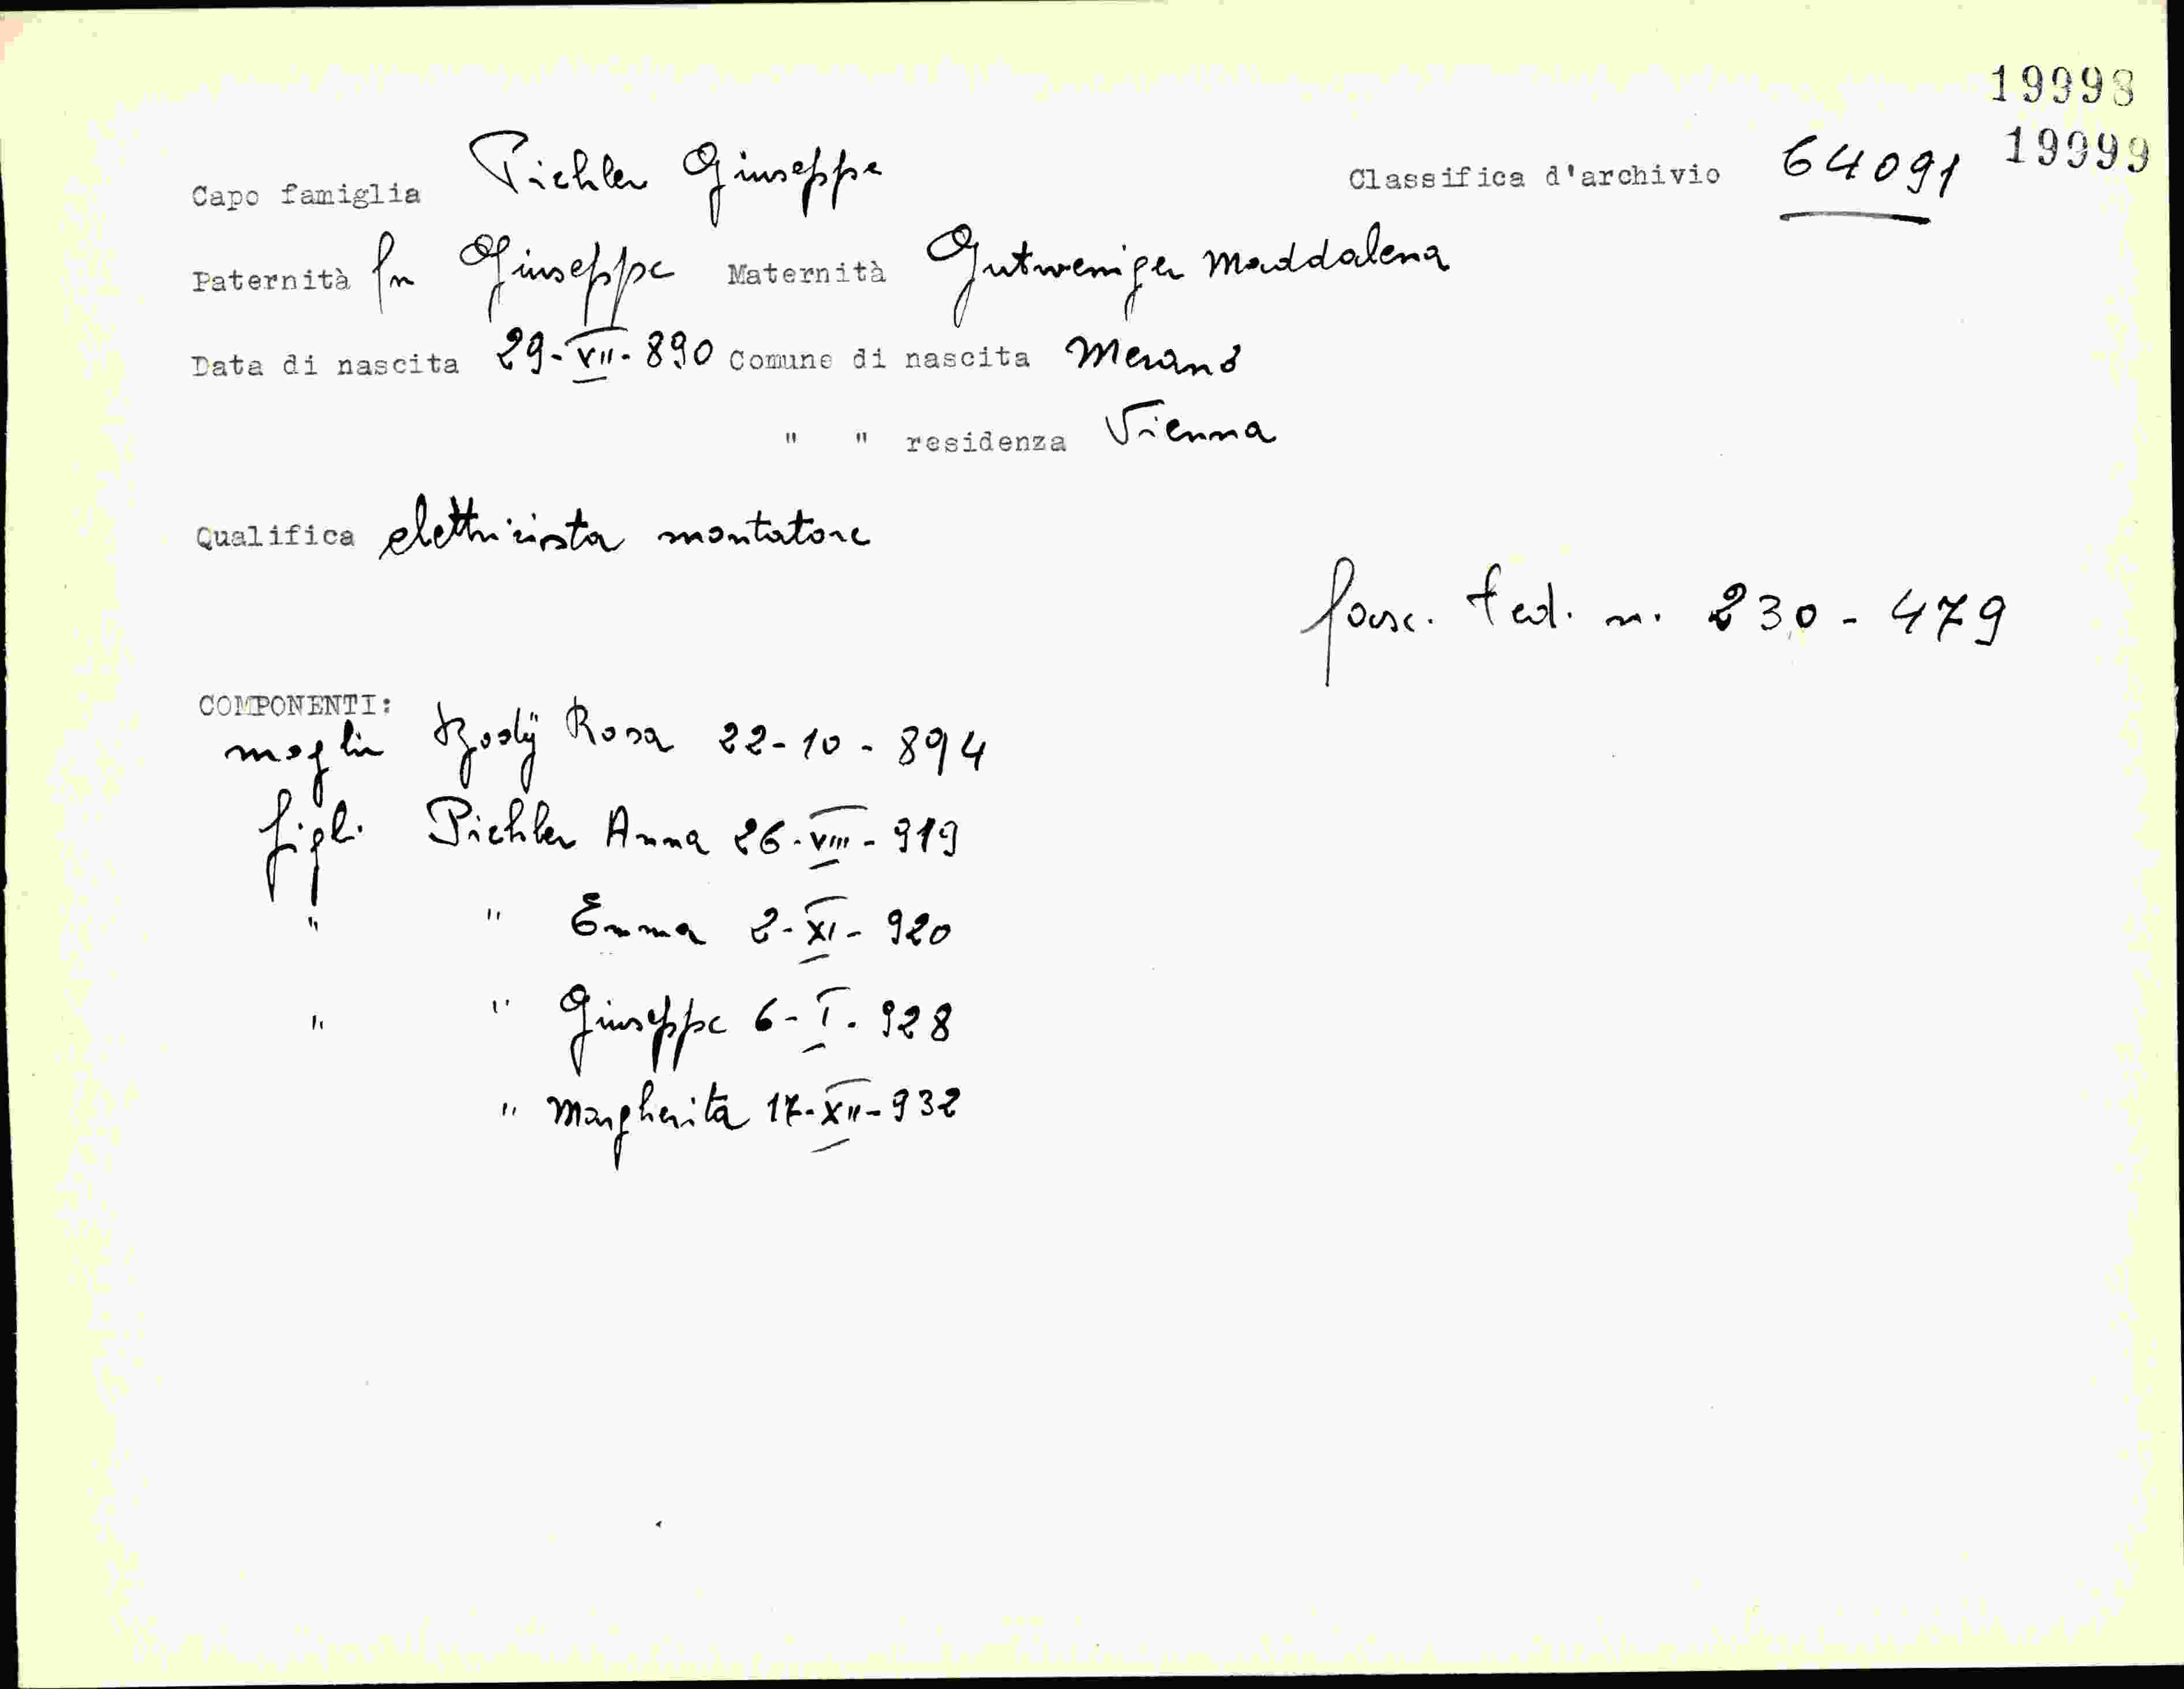 19998
19999
Capo famiglia Pichler Giuseppe Classifica d'archivio 64091
Paternità fu Giuseppe Maternità Gutweniger Maddalena
Data di nascita 29-VII-890 Comune di nascita Merano
" " residenza Vienna
Qualifica elettricista montatore
fasc. ted. n. 230-479
COMPONENTI:
moglie Rosa 22-10-894
figli Pichler Anna 26-VIII-919
" " Emma 2-XI-920
" " Giuseppe 6-I-928
" Margherita 17-XII-932